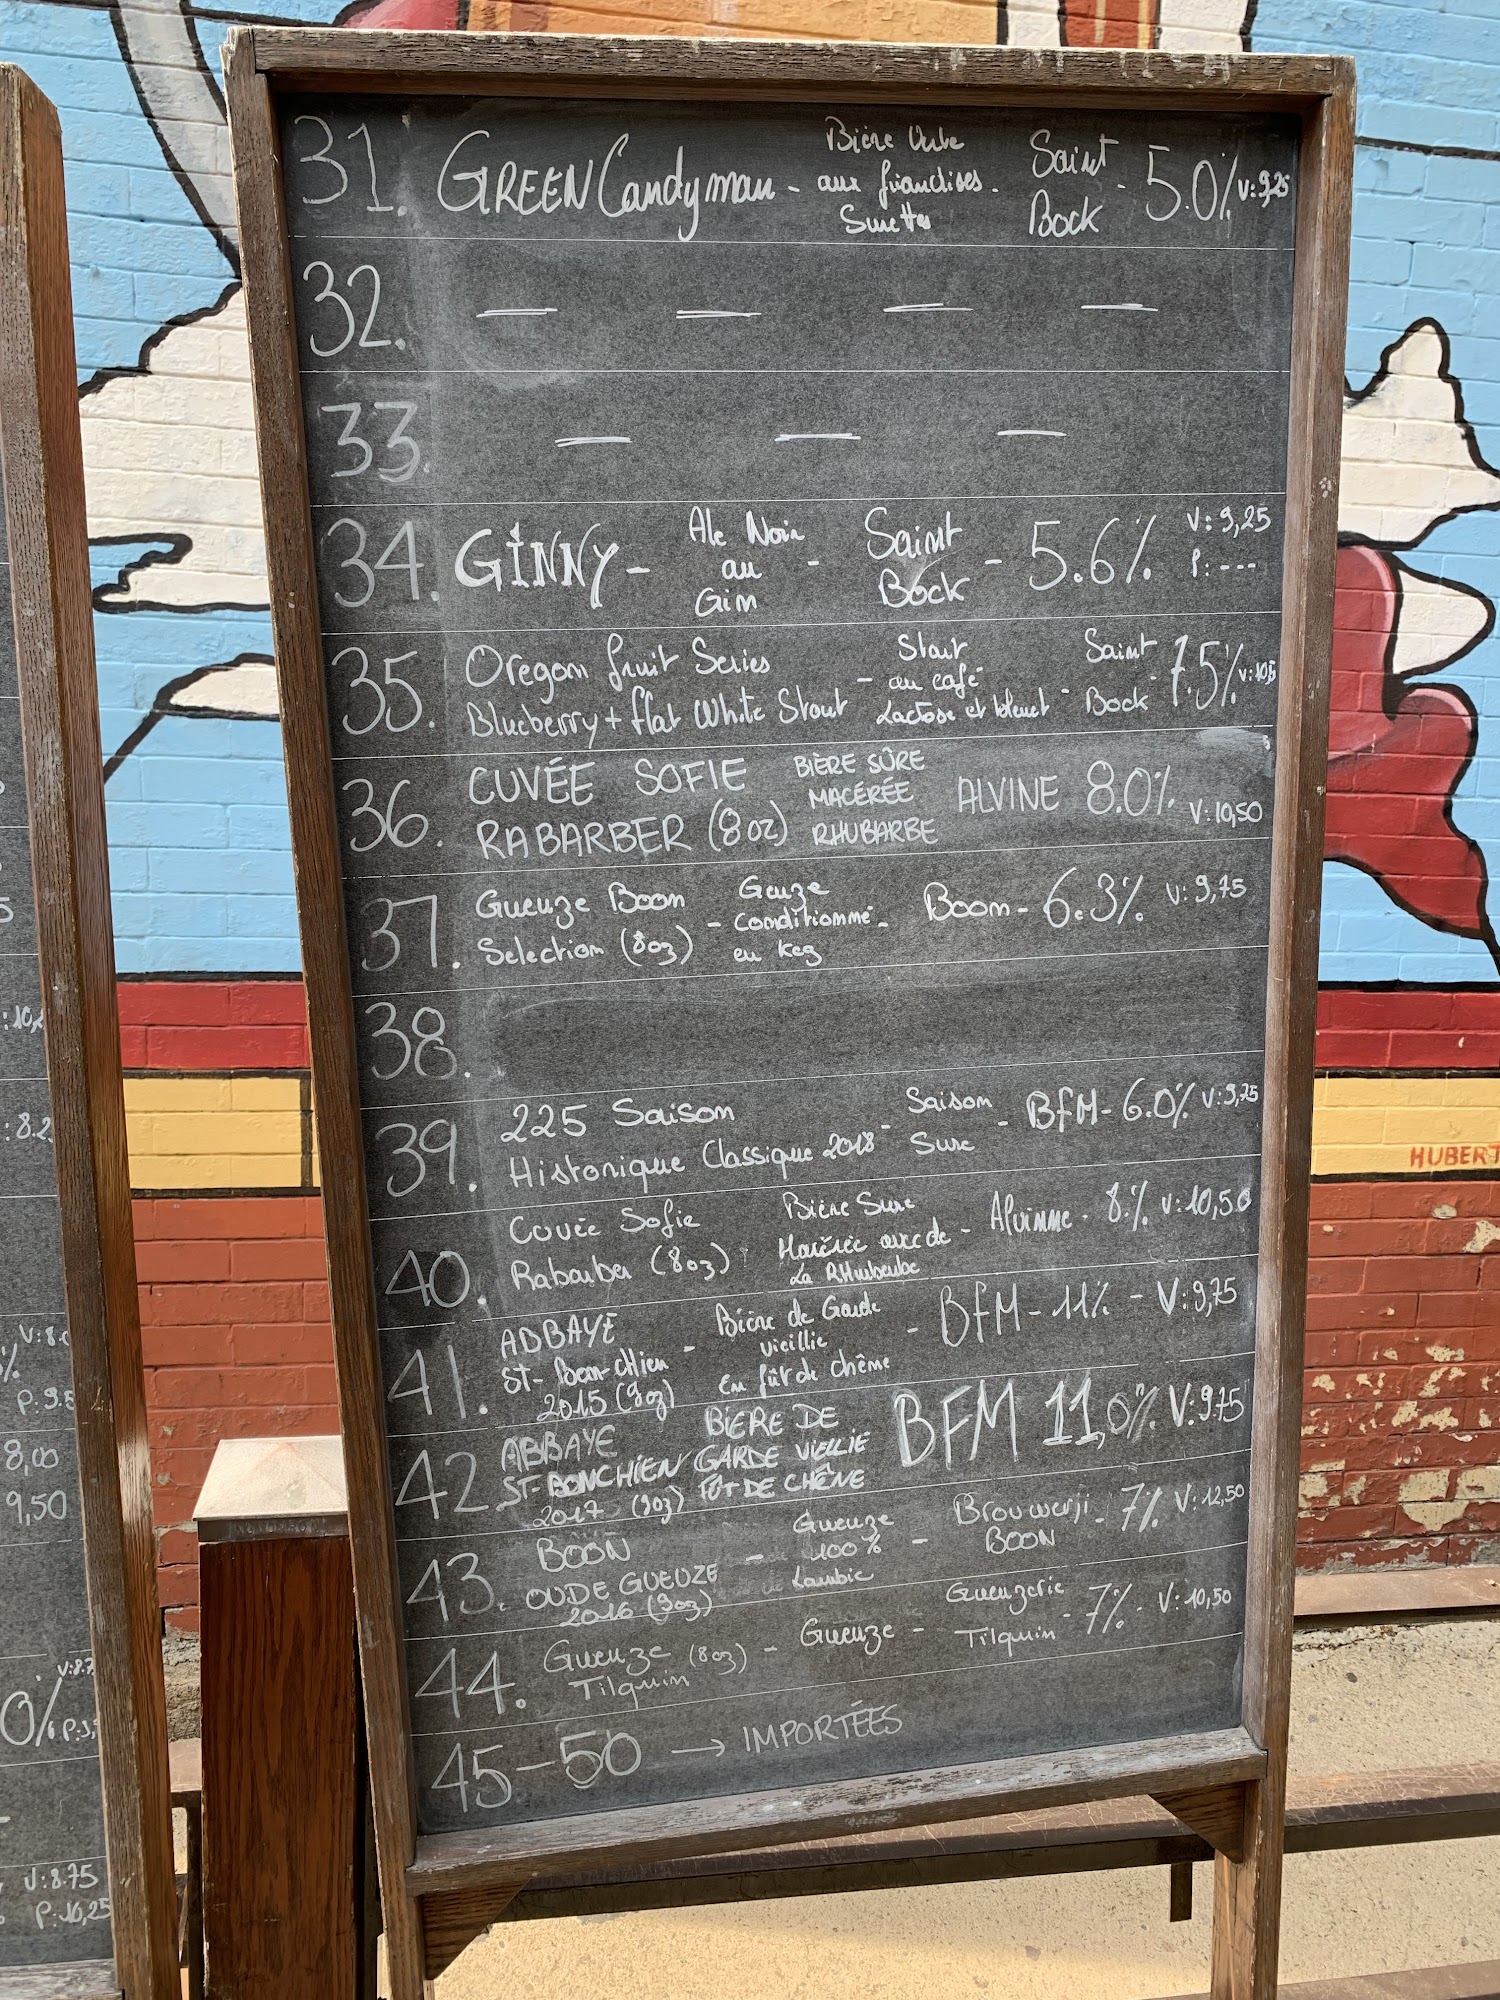 31. GREEN Candyman - Bière Verte aux friandises Surettes - Saint Bock - 5.0% V: 9,25
32. — — — —
33. — — —
34. GINNY - Ale Noir au Gin - Saint Bock - 5.6% V: 9,25 P: ---
35. Oregon fruit Series Blueberry + flat White Stout - Stout au café Lactose et bleuet - Saint Bock - 7.5% V: 10,5
36. CUVÉE SOFIE RABARBER (8oz) BIÈRE SÛRE MACÉRÉE RHUBARBE ALVINE 8.0% V: 10,50
37. Gueuze Boon Selection (8oz) - Geuze conditionné en keg - Boon - 6.3% V: 9,75
38.
39. 225 Saison Historique Classique 2018 - Saison Sure - BFM - 6.0% V: 9,75
40. Cuvée Sofie Rabarber (8oz) Bière Sure Macérée avec de La RHubarbe - Alvinne - 8% V: 10,50
41. ABBAYE ST-Bon-Chien 2015 (9oz) - Bière de Garde vieillie en fût de chêne - BFM - 11% - V: 9,75
42. ABBAYE ST-BONCHIEN 2017 (9oz) BIERE DE GARDE VIELLIE FÛT DE CHÊNE BFM 11,0% V: 9.75
43. BOON OUDE GUEUZE 2016 (9oz) - Gueuze 100% Lambic - Brouwerji BOON - 7% V: 12,50
44. Gueuze Tilquin (8oz) - Gueuze - Gueuzerie Tilquin - 7% - V: 10,50
45-50 → IMPORTÉES
HUBERT
8,00
9,50
V:8.75
P:10,25